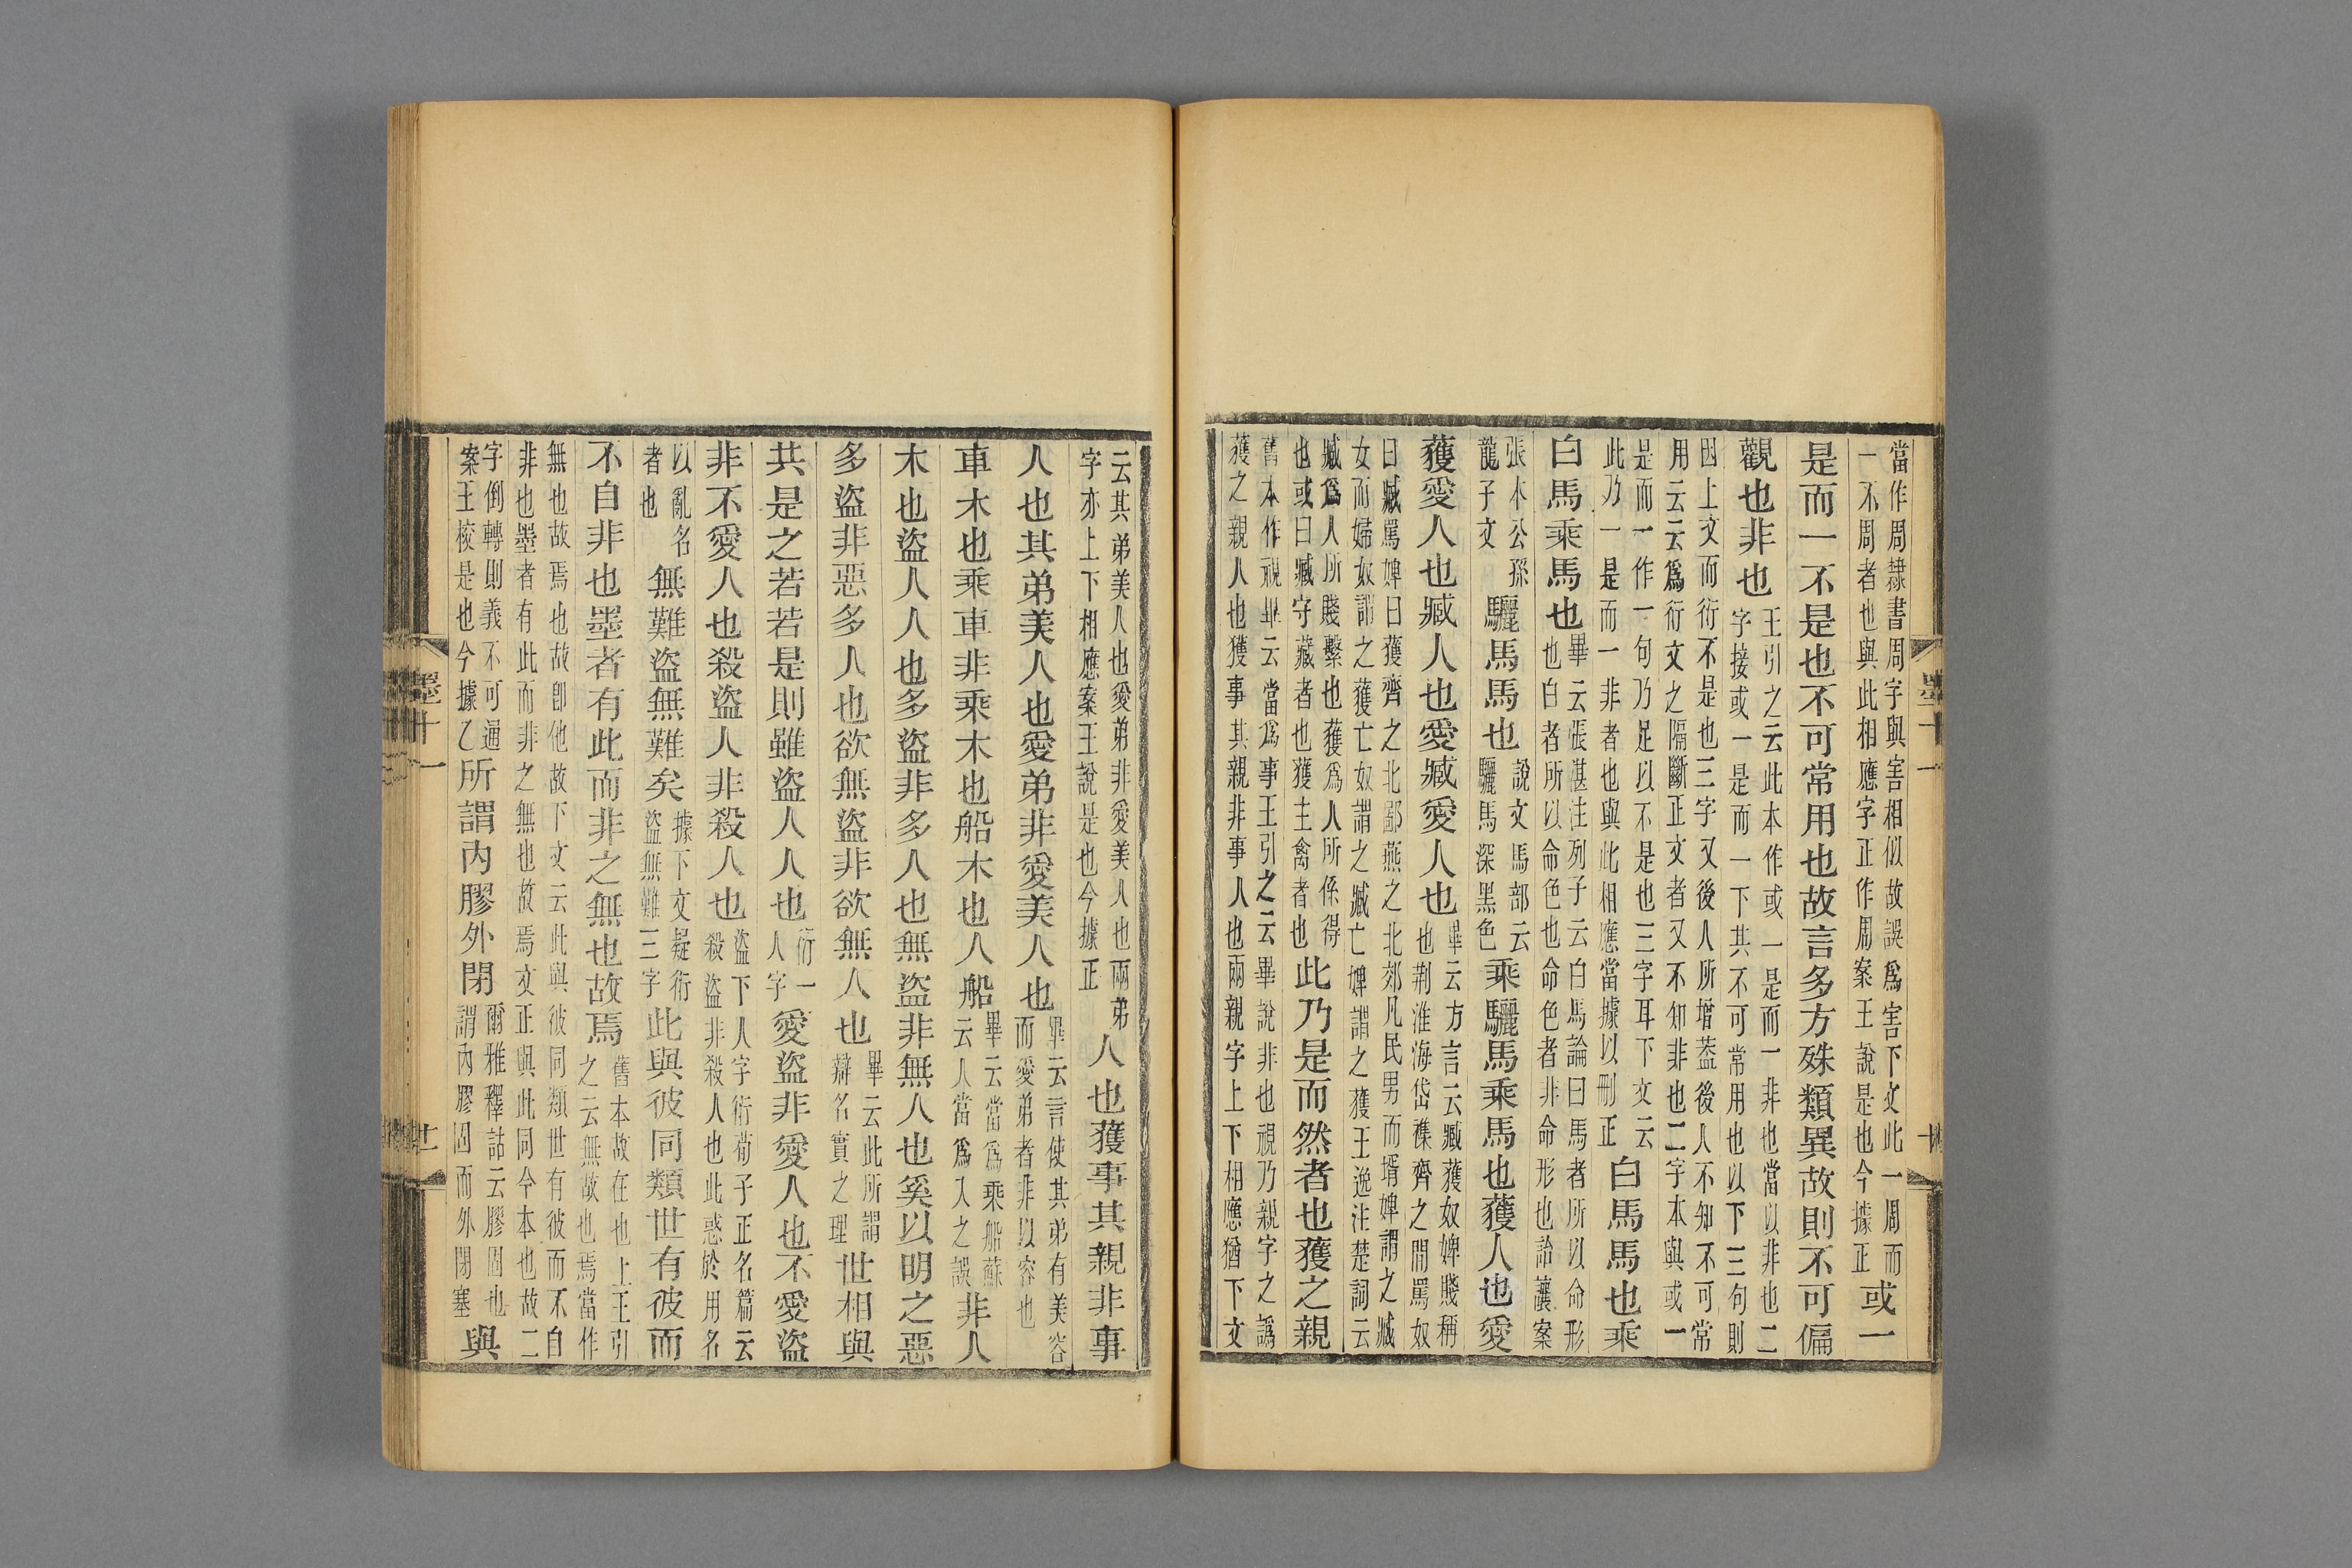 當作周隸書周字與害相似故誤爲害下文此一周而
一不周者也與此相應字正作周案王說是也今據正
或一
是而一不是也不可常用也故言多方殊類異故則不可偏
觀也非也
王引之云此本作或一是而一非也當以非也二
字接或一是而一下其不可常用也以下三句則
因上文而衍不是也三字又後人所增葢後人不知不可常
用云云爲衍文之隔斷正文者又不知非也二字本與或一
是而一作一句乃足以不是也三字耳下文云
此乃一是而一非者也與此相應當據以刪正
白馬馬也乘
白馬乘馬也
畢云張湛注列子云白馬論曰馬者所以命形
也白者所以命色也命色者非命形也詒讓案
張本公孫
龍子文
驪馬馬也
說文馬部云
驪馬深黑色
乘驪馬乘馬也獲人也愛
獲愛人也臧人也愛臧愛人也
畢云方言云臧獲奴婢賤稱
也荆淮海岱襍齊之間罵奴
曰臧罵婢曰獲齊之北鄙燕之北郊凡民男而壻婢謂之臧
女而婦奴謂之獲亡奴謂之臧亡婢謂之獲王逸注楚詞云
臧爲人所賤繫也獲爲人所係得
也或曰臧守藏者也獲主禽者也
此乃是而然者也獲之親
舊本作視畢云當爲事王引之云畢說非也視乃親字之譌
獲之親人也獲事其親非事人也兩親字上下相應猶下文
云其弟美人也愛弟非愛美人也兩弟
字亦上下相應案王說是也今據正
人也獲事其親非事
人也其弟美人也愛弟非愛美人也
畢云言使其弟有美容
而愛弟者非以容也
車木也乘車非乘木也船木也人船
畢云當爲乘船蘇
云人當爲入之誤
非人
木也盜人人也多盜非多人也無盜非無人也奚以明之惡
多盜非惡多人也欲無盜非欲無人也
畢云此所謂
辯名實之理
世相與
共是之若若是則雖盜人人也
衍一
人字
愛盜非愛人也不愛盜
非不愛人也殺盜人非殺人也
盜下人字衍荀子正名篇云
殺盜非殺人也此惑於用名
以亂名
者也
無難盜無難矣
據下文疑衍
盜無難三字
此與彼同類世有彼而
不自非也墨者有此而非之無也故焉
舊本故在也上王引
之云無故也焉當作
無也故焉也故卽他故下文云此與彼同類世有彼而不自
非也墨者有此而非之無也故焉文正與此同今本也故二
字倒轉則義不可通
案王校是也今據乙
所謂內膠外閉
爾雅釋詁云膠固也
謂內膠固而外閉塞
與
墨十一
墨十一